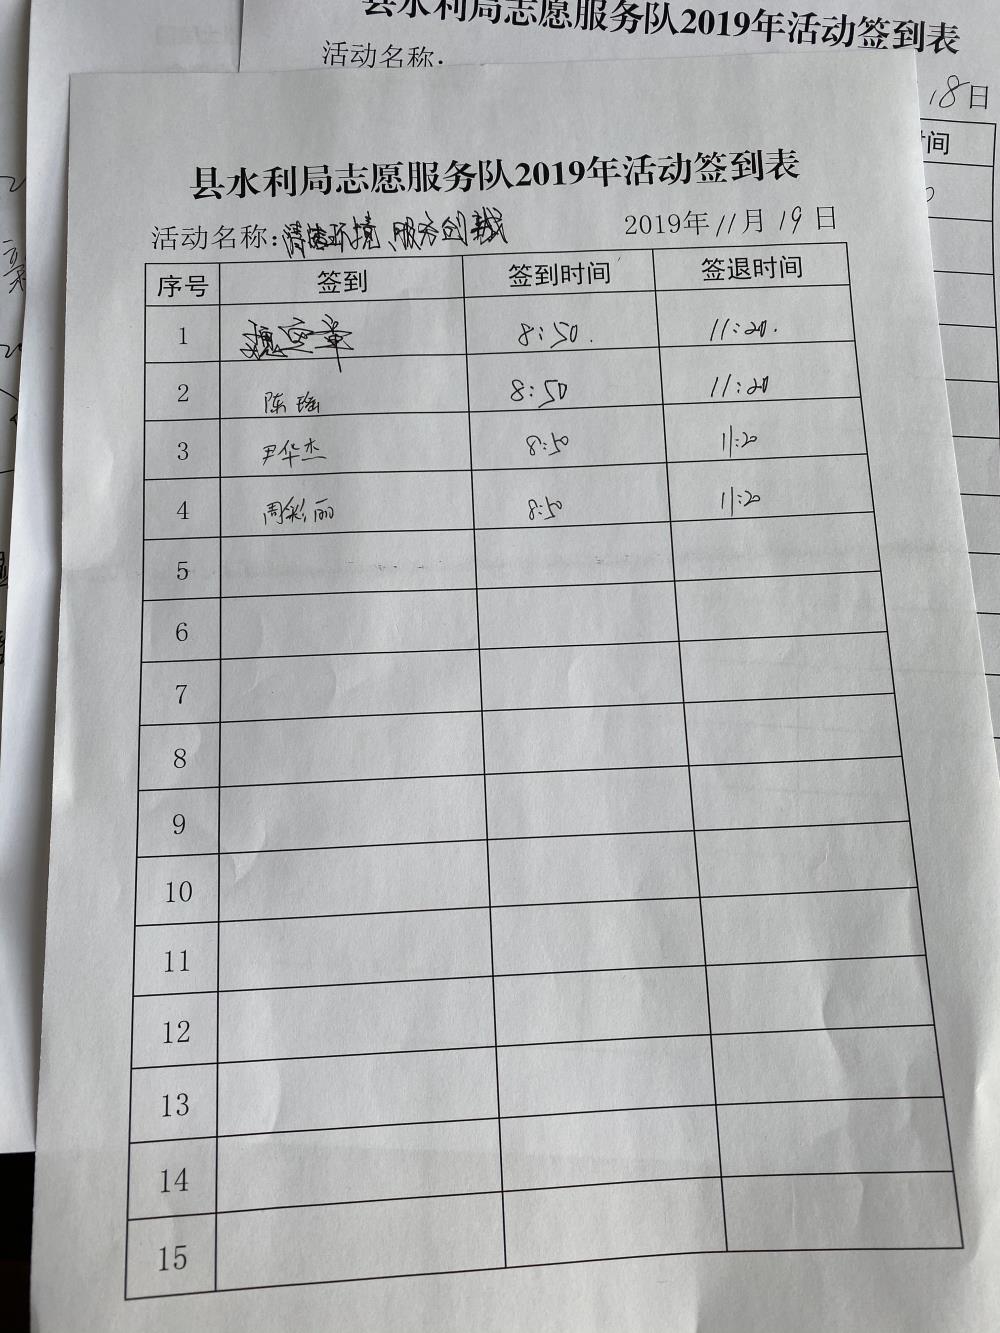 县水利局志愿服务队2019年活动签到表
活动名称:
18日
时间
县水利局志愿服务队2019年活动签到表
活动名称:清洁环境、服务创城 2019年11月19日
序号 签到 签到时间 签退时间
1 8:50. 11:20.
2 陈瑶 8:50 11:20
3 尹华杰 8:50 11:20
4 周彩丽 8:50 11:20
5
6
7
8
9
10
11
12
13
14
15